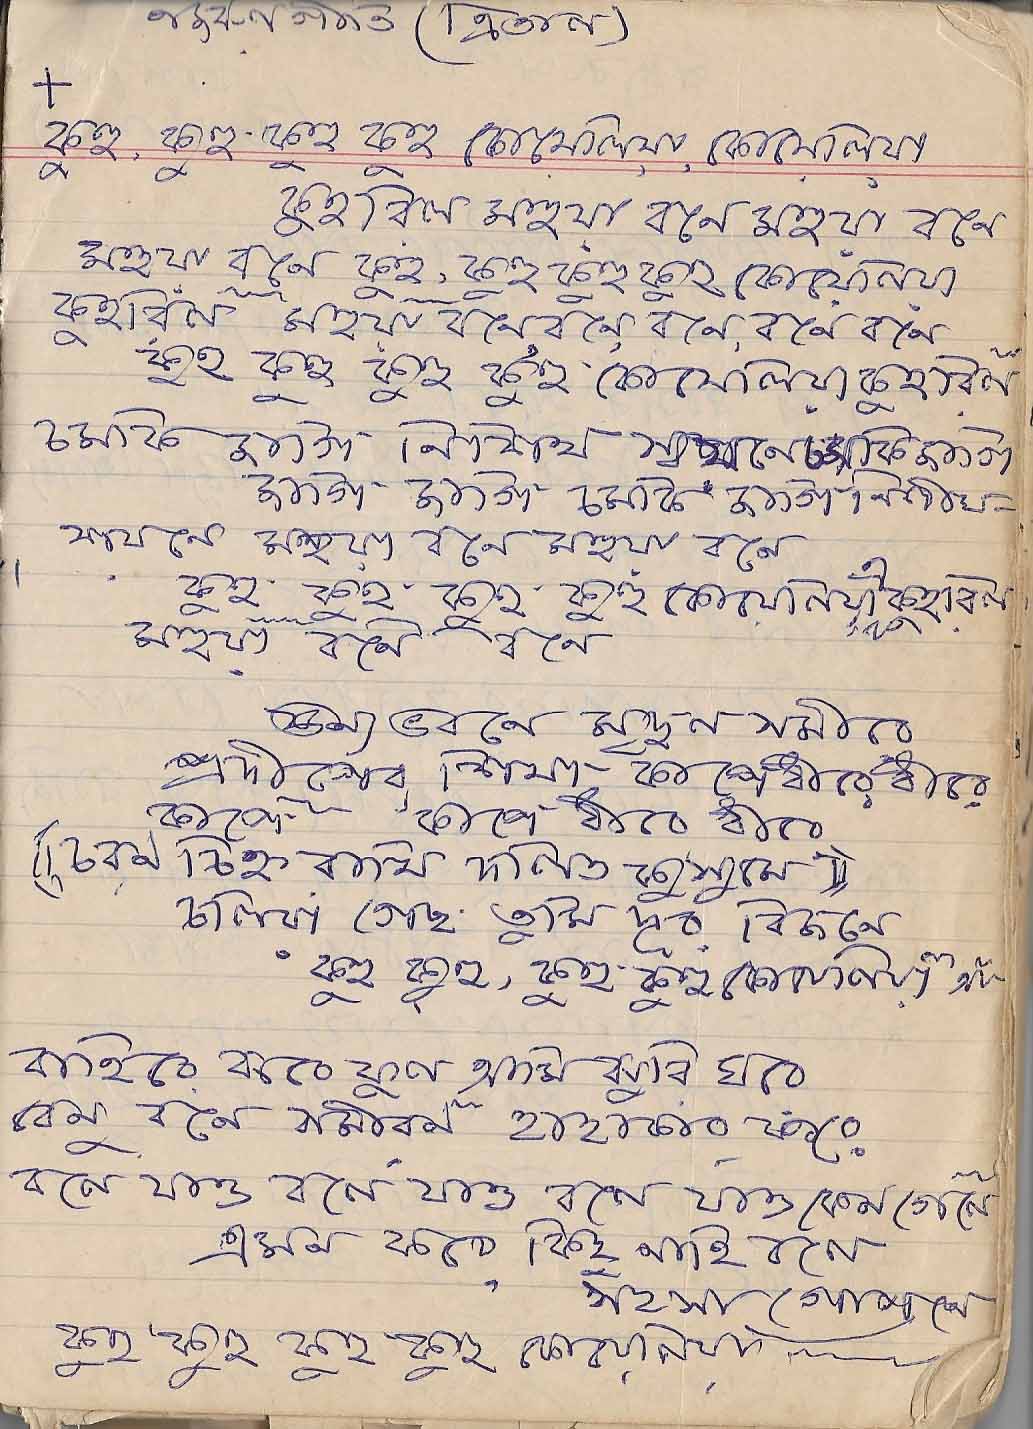 নজরুল গীতি (ত্রিতাল)
+
কুহু, কুহু কুহু কুহু কোয়েলিয়া, কোয়েলিয়া
কুহরিল মহুয়া বনে মহুয়া বনে
মহুয়া বনে কুহু, কুহু কুহু কুহু কোয়েলিয়া
কুহরিল মহুয়া বনে, বনে, বনে, বনে বনে
কুহু কুহু কুহু কুহু কোয়েলিয়া কুহরিল
চমকি জাগি নিশীথ শয়নে চমকি জাগি
জাগি জাগি চমকি জাগি নিশীথ-
শয়নে মহুয়া বনে মহুয়া বনে
কুহু কুহু কুহু কুহু কোয়েলিয়া কুহরিল
মহুয়া বনে বনে
শূন্য ভবনে মৃদুল সমীরে
প্রদীপের শিখা কাঁপে ধীরে ধীরে
কাঁপে কাঁপে ধীরে ধীরে
(( চরণ চিহ্ন রাখি দলিত কুসুমে ))
চলিয়া গেছ তুমি দূর বিজনে
কুহু কুহু, কুহু কুহু কোয়েলিয়া
বাহিরে ঝরে ফুল আমি ঝুরি ঘরে
বেনু বনে সমীরণ হাহাকার করে
বলে যাও বলে যাও বলে যাও কেন গেলে
এমন করে কিছু নাহি বলে
সহসা গোপনে
কুহু কুহু কুহু কুহু কোয়েলিয়া